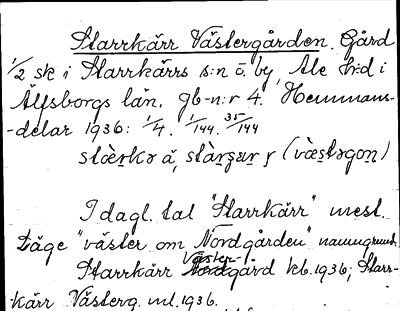 Starrkärr Västergården. Gård
1/2 sk i Starrkärrs s:n o. by, Ale h:d i
Älfsborgs län. Gb-n:r 4. Hemmans-
-delar 1936: 1/4. 1/144. 35/144
I dagl. tal "Starrkärr" mest.
Läge "väster om Nordgården" namngrund.
Starrkärr Västergård kb. 1936; Starr-
kärr Västerg. ml. 1936.